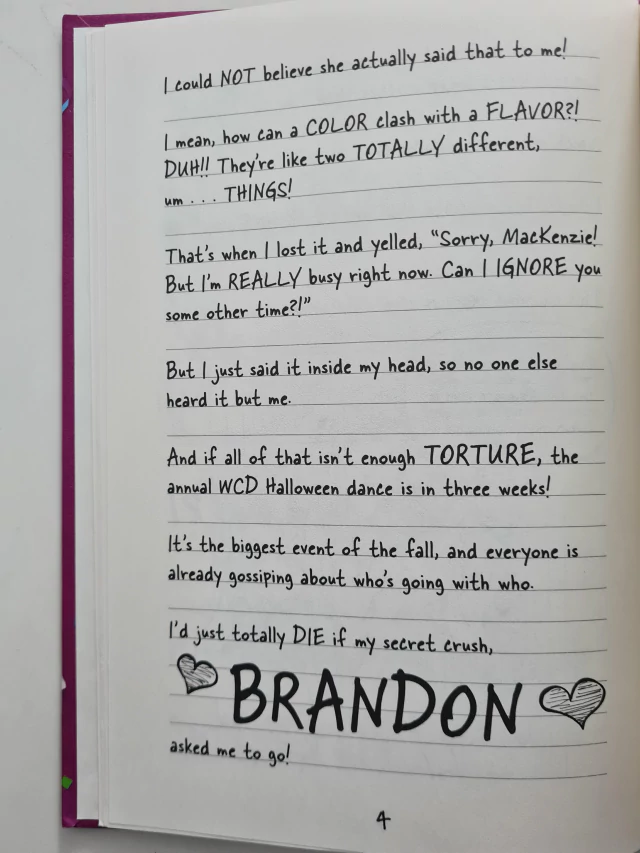 I could NOT believe she actually said that to me!
I mean, how can a COLOR clash with a FLAVOR?!
DUH!! They're like two TOTALLY different,
um . . . THINGS!
That's when I lost it and yelled, "Sorry, MacKenzie!
But I'm REALLY busy right now. Can I IGNORE you
some other time?!"
But I just said it inside my head, so no one else
heard it but me.
And if all of that isn't enough TORTURE, the
annual WCD Halloween dance is in three weeks!
It's the biggest event of the fall, and everyone is
already gossiping about who's going with who.
I'd just totally DIE if my secret crush,
BRANDON
asked me to go!
4